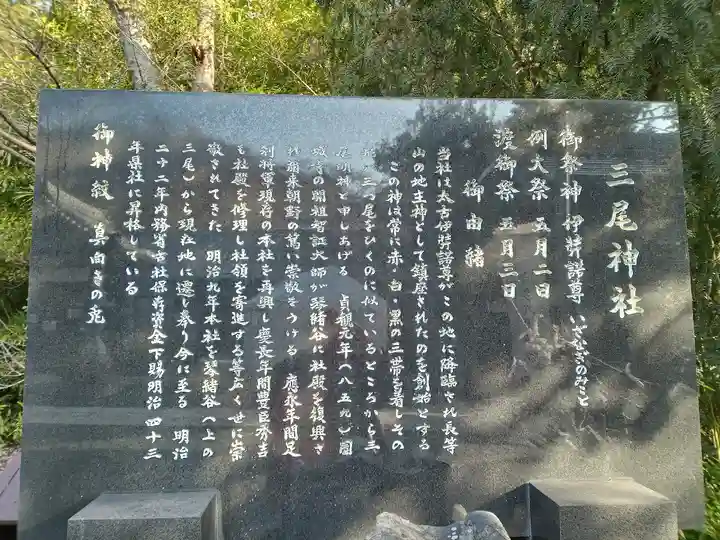 三尾神社
御祭神 伊弉諾尊 いざなぎのみこと
例大祭 五月二日
渡御祭 五月三日
御由緒
当社は太古伊弉諾尊がこの地に降臨され長等
山の地主神として鎮座されたのを創始とする
この神は常に赤・白・黒の三帯を着しその
形 三つ尾をひくのに似ているところから三
尾明神と申しあげる 貞観元年(八五九)園
城寺の開祖智証大師が琴緒谷に社殿を復興さ
れ爾来朝野の篤い崇敬をうける 應永年間足
利将軍現存の本社を再興し慶長年間豊臣秀吉
も社殿を修理し社領を寄進する等広く世に崇
敬されてきた 明治九年本社を琴緒谷(上の
三尾)から現在地に遷し奉り今に至る 明治
二十二年内務省古社保存資金下賜明治四十三
年県社に昇格している
御神紋 真向きの兎